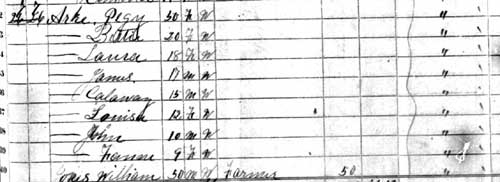 Arke, Pegy 50 F W "
— 20 F W "
— Laura 18 F W "
— James 17 m W "
— Calaway 15 m W "
— Louisa 12 F W "
— John 10 m W "
— 9 F W "
William 50 m W Farmer 50 "